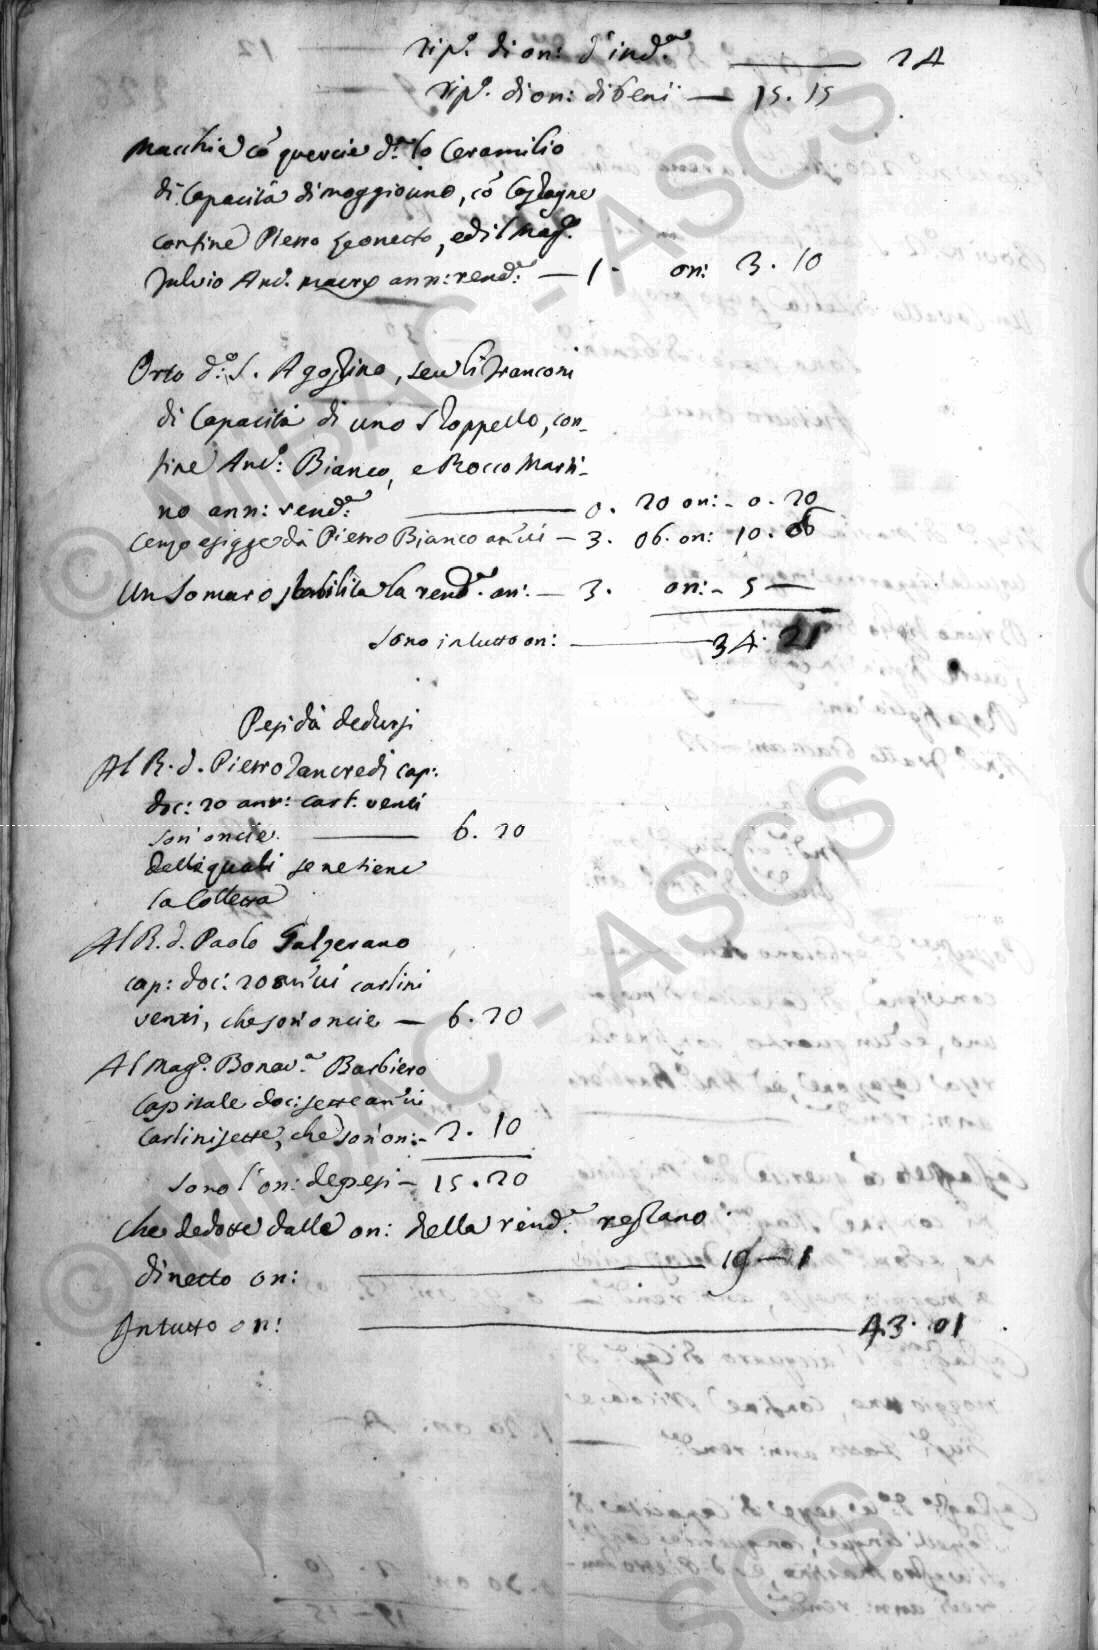 rip.º di on: d'ind.ª —— 24
rip.º di on: di beni — 15. 15
Macchia co' quercie d.ª lo Ceramilio
di Capacità di moggio uno, co' Castagne
confine Pietro Leonetto, ed il Mag.º
Fulvio And. annː rend.ª — 1. on: 3. 10
Orto d.º S. Agostino, seu li Franconi
di Capacità di uno stoppello, con-
fine And: Bianco, e Rocco Marti-
no ann: rend.ª —— 0. 20 on: - 0. 20
Cenzo esigge da Pietro Bianco an'ui — 3. 06. on: 10. 06
Un Somaro stabilita la rend.ª on: — 3. on: - 5 —
Sono in tutto on: —— 34. 21
Pesi da dedursi
Al R. d. Pietro Tancredi cap:
doc: 20 ann: carl. venti
son' oncie —— 6. 20
delli quali se ne tiene
la Colletta
Al R. d. Paolo Galzerano
cap: doc: 20 an'ui carlini
venti, che son' oncie — 6. 20
Al Mag.º Bonav.ª Barbiero
Capitale doc: sette an'ui
Carlini sette, che son' on: - 2. 10
Sono l'on: de pesi — 15. 20
che dedotte dalle on: della rend.ª restano
di netto on: —— 19 — 1
In tutto on: —— 43. 01
© MIBAC - ASCS
© MIBAC - ASCS
ASCS